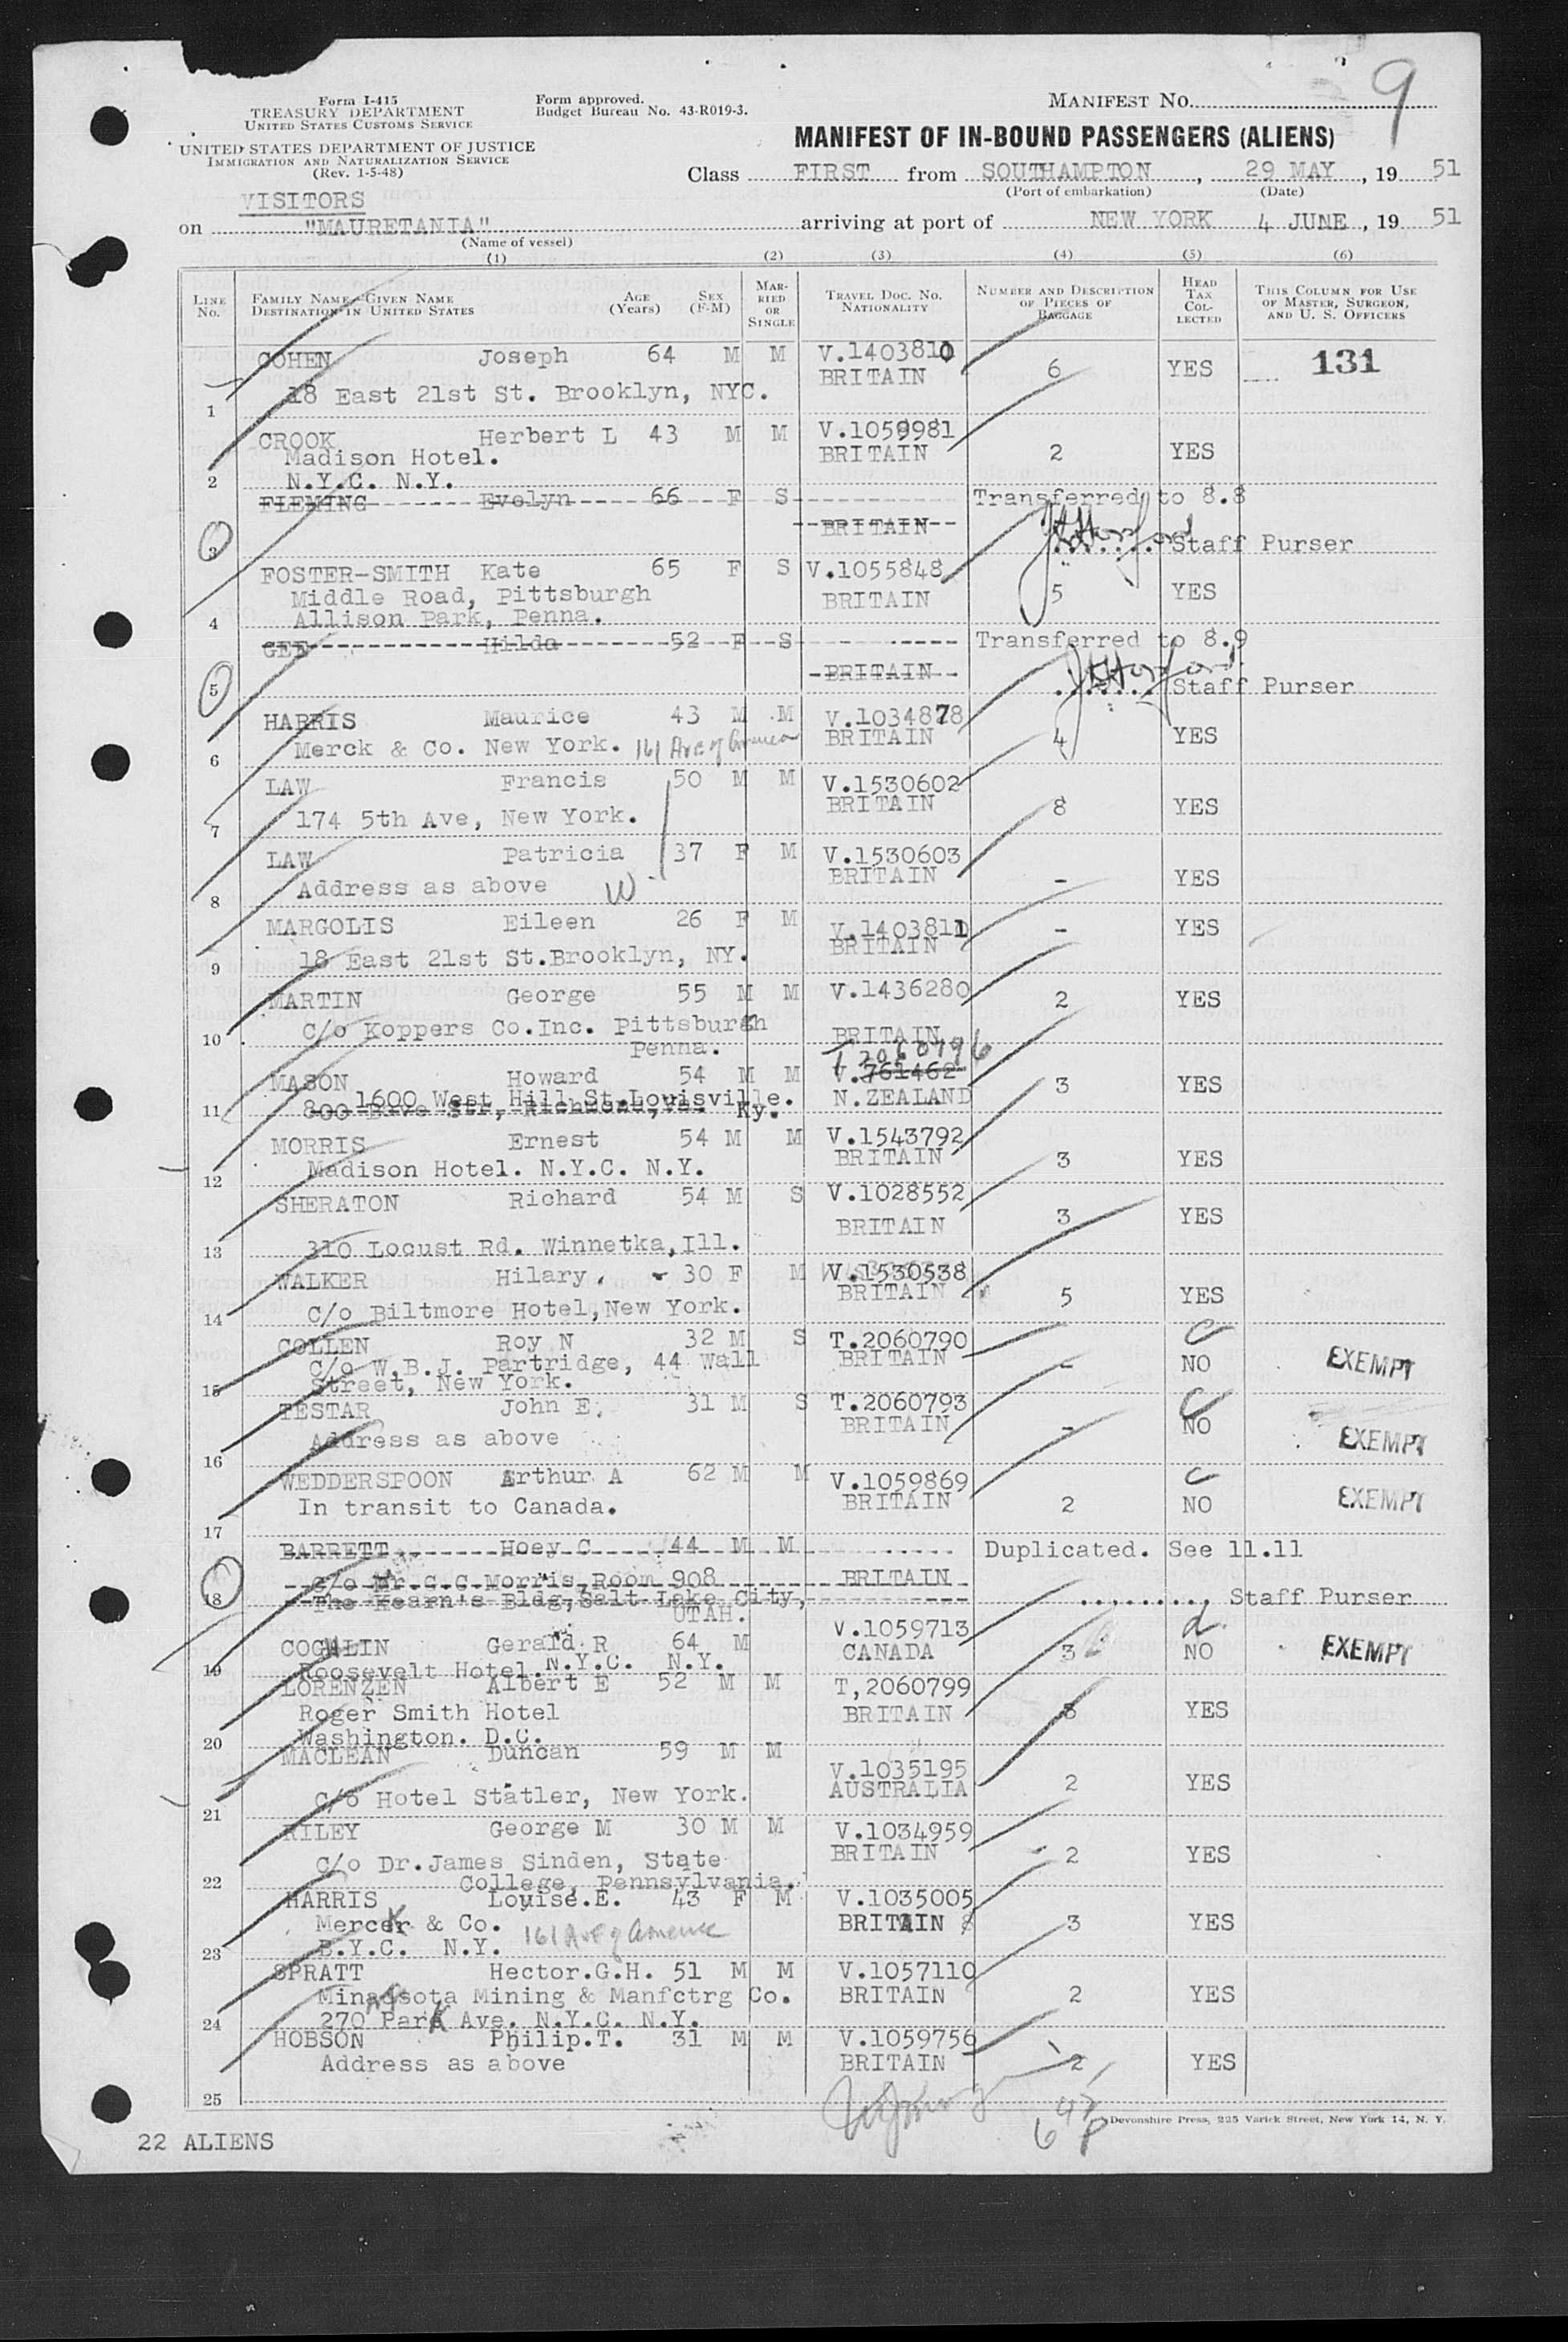 9
Form I-415
TREASURY DEPARTMENT
UNITED STATES CUSTOMS SERVICE
Form approved.
Budget Bureau No. 43-R019-3.
MANIFEST NO.
UNITED STATES DEPARTMENT OF JUSTICE
IMMIGRATION AND NATURALIZATION SERVICE
(Rev. 1-5-48)
MANIFEST OF IN-BOUND PASSENGERS (ALIENS)
Class FIRST from SOUTHAMPTON, 29 MAY, 19 51
(Port of embarkation) (Date)
VISITORS
on "MAURETANIA" arriving at port of NEW YORK 4 JUNE, 19 51
(Name of vessel)
(1) (2) (3) (4) (5) (6)
LINE NO. FAMILY NAME—GIVEN NAME DESTINATION IN UNITED STATES AGE (Years) SEX (F-M) MARRIED OR SINGLE TRAVEL DOC. NO. NATIONALITY NUMBER AND DESCRIPTION OF PIECES OF BAGGAGE HEAD TAX COLLECTED THIS COLUMN FOR USE OF MASTER, SURGEON, AND U. S. OFFICERS
COHEN Joseph 64 M M V.1403810 6 YES 131
BRITAIN
18 East 21st St. Brooklyn, NYC.
1
CROOK Herbert L 43 M M V.1059981
Madison Hotel. BRITAIN 2 YES
2 N.Y.C. N.Y.
FLEMING Evelyn 66 F S Transferred to 8.8
BRITAIN
3 Staff Purser
FOSTER-SMITH Kate 65 F S V.1055848
Middle Road, Pittsburgh BRITAIN 5 YES
4 Allison Park, Penna.
GEE Hilda 52 F S Transferred to 8.9
BRITAIN
5 Staff Purser
HARRIS Maurice 43 M M V.1034878
Merck & Co. New York. 161 Ave of America BRITAIN 4 YES
6
LAW Francis 50 M M V.1530602
BRITAIN 8 YES
7 174 5th Ave, New York.
LAW Patricia 37 F M V.1530603
Address as above W BRITAIN - YES
8
MARGOLIS Eileen 26 F M V.1403811 - YES
BRITAIN
9 18 East 21st St.Brooklyn, NY.
MARTIN George 55 M M V.1436280 2 YES
10 C/o Koppers Co.Inc. Pittsburgh BRITAIN
Penna. T 2060796
MASON Howard 54 M M V.761462 3 YES
1600 West Hill St.Louisville. Ky. N.ZEALAND
11
MORRIS Ernest 54 M M V.1543792
Madison Hotel. N.Y.C. N.Y. BRITAIN 3 YES
12
SHERATON Richard 54 M S V.1028552
BRITAIN 3 YES
13 310 Locust Rd. Winnetka,Ill.
WALKER Hilary. 30 F M V.1530538
BRITAIN 5 YES
14 C/o Biltmore Hotel,New York.
COLLEN Roy N 32 M S T.2060790 C
C/o W.B.J. Partridge, 44 Wall BRITAIN - NO EXEMPT
15 Street, New York.
TESTAR John E. 31 M S T.2060793 C
Address as above BRITAIN - NO EXEMPT
16
WEDDERSPOON Arthur A 62 M M V.1059869 C
In transit to Canada. BRITAIN 2 NO EXEMPT
17
BARRETT Hoey C 44 M M Duplicated. See 11.11
C/o Mr.G.C.Morris,Room 908 BRITAIN
18 The Kearn's Bldg,Salt Lake City, Staff Purser
UTAH.
COGHLIN Gerald R 64 M V.1059713 d
CANADA 3 NO EXEMPT
19 Roosevelt Hotel.N.Y.C. N.Y.
LORENZEN Albert E 52 M M T,2060799
Roger Smith Hotel BRITAIN 3 YES
20 Washington. D.C.
MACLEAN Duncan 59 M M V.1035195
AUSTRALIA 2 YES
21 C/o Hotel Statler, New York.
RILEY George M 30 M M V.1034959
BRITAIN 2 YES
C/o Dr.James Sinden, State
22 College, Pennsylvania.
HARRIS Louise.E. 43 F M V.1035005
Mercer & Co. 161 Ave of America BRITAIN 3 YES
23 B.Y.C. N.Y.
SPRATT Hector.G.H. 51 M M V.1057110
Minaesota Mining & Manfctrg Co. BRITAIN 2 YES
24 270 Park Ave. N.Y.C. N.Y.
HOBSON Philip.T. 31 M M V.1059756
Address as above BRITAIN 2 YES
25
Devonshire Press, 225 Varick Street, New York 14, N. Y.
22 ALIENS